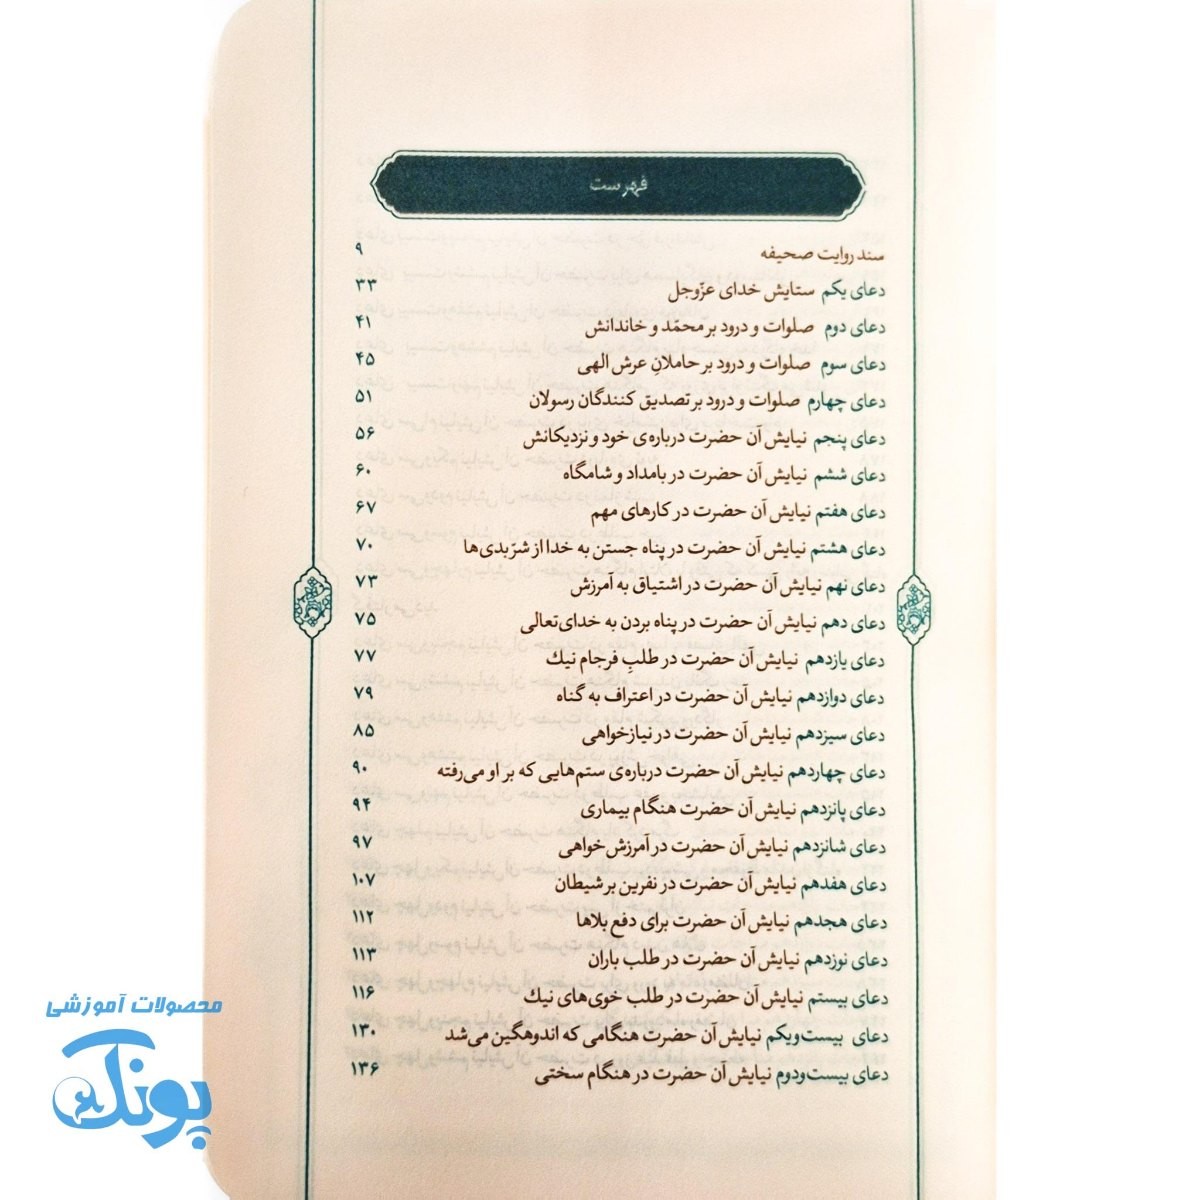 فهرست
سند روایت صحیفه ۹
دعای یکم ستایش خدای عزّوجل ۳۳
دعای دوم صلوات و درود بر محمّد و خاندانش ۴۱
دعای سوم صلوات و درود بر حاملانِ عرش الهی ۴۵
دعای چهارم صلوات و درود بر تصدیق کنندگان رسولان ۵۱
دعای پنجم نیایش آن حضرت درباره‌ی خود و نزدیکانش ۵۶
دعای ششم نیایش آن حضرت در بامداد و شامگاه ۶۰
دعای هفتم نیایش آن حضرت در کارهای مهم ۶۷
دعای هشتم نیایش آن حضرت در پناه جستن به خدا از شرّ بدی‌ها ۷۰
دعای نهم نیایش آن حضرت در اشتیاق به آمرزش ۷۳
دعای دهم نیایش آن حضرت در پناه بردن به خدای‌تعالی ۷۵
دعای یازدهم نیایش آن حضرت در طلبِ فرجام نیك ۷۷
دعای دوازدهم نیایش آن حضرت در اعتراف به گناه ۷۹
دعای سیزدهم نیایش آن حضرت در نیازخواهی ۸۵
دعای چهاردهم نیایش آن حضرت درباره‌ی ستم‌هایی که بر او می‌رفته ۹۰
دعای پانزدهم نیایش آن حضرت هنگام بیماری ۹۴
دعای شانزدهم نیایش آن حضرت در آمرزش‌خواهی ۹۷
دعای هفدهم نیایش آن حضرت در نفرین بر شیطان ۱۰۷
دعای هجدهم نیایش آن حضرت برای دفع بلاها ۱۱۲
دعای نوزدهم نیایش آن حضرت در طلب باران ۱۱۳
دعای بیستم نیایش آن حضرت در طلب خوی‌های نیك ۱۱۶
دعای بیست‌ویکم نیایش آن حضرت هنگامی که اندوهگین می‌شد ۱۳۰
دعای بیست‌ودوم نیایش آن حضرت در هنگام سختی ۱۳۶
محصولات آموزشی
پونک